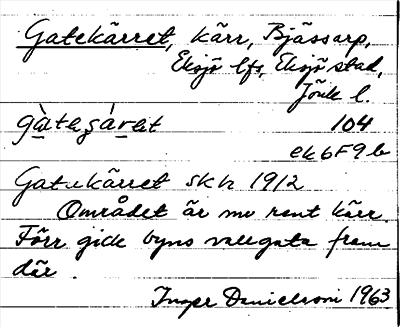 Gatekärret, kärr, Bjässarp,
Eksjö lfs, Eksjö stad,
Jönk l.
gàtesárət 104
ek 6F9b
Gatukärret skh 1912
Området är nu rent kärr.
Förr gick byns vallgata fram
där.
Inger Danielsson 1963